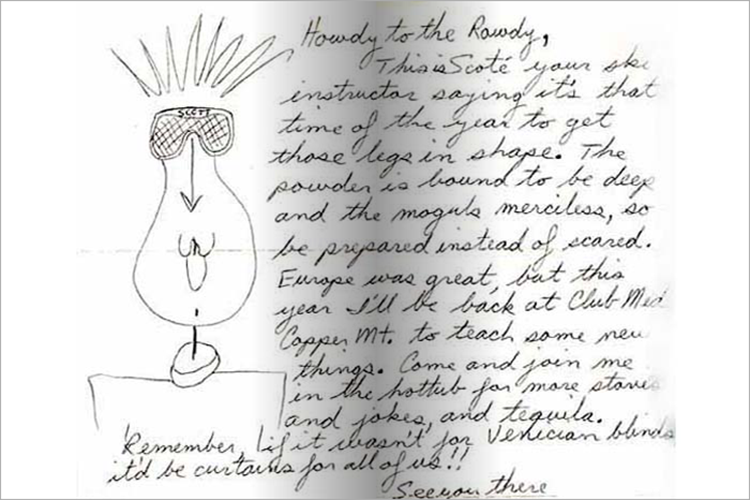 SCOTT
Howdy to the Rowdy,
This is Scoté your ski
instructor saying it's that
time of the year to get
those legs in shape. The
powder is bound to be deep
and the moguls merciless, so
be prepared instead of scared.
Europe was great, but this
year I'll be back at Club Med
Copper Mt. to teach some new
things. Come and join me
in the hottub for more stories
and jokes, and tequila.
Remember, if it wasn't for Venician blinds
it'd be curtains for all of us!!
See you there